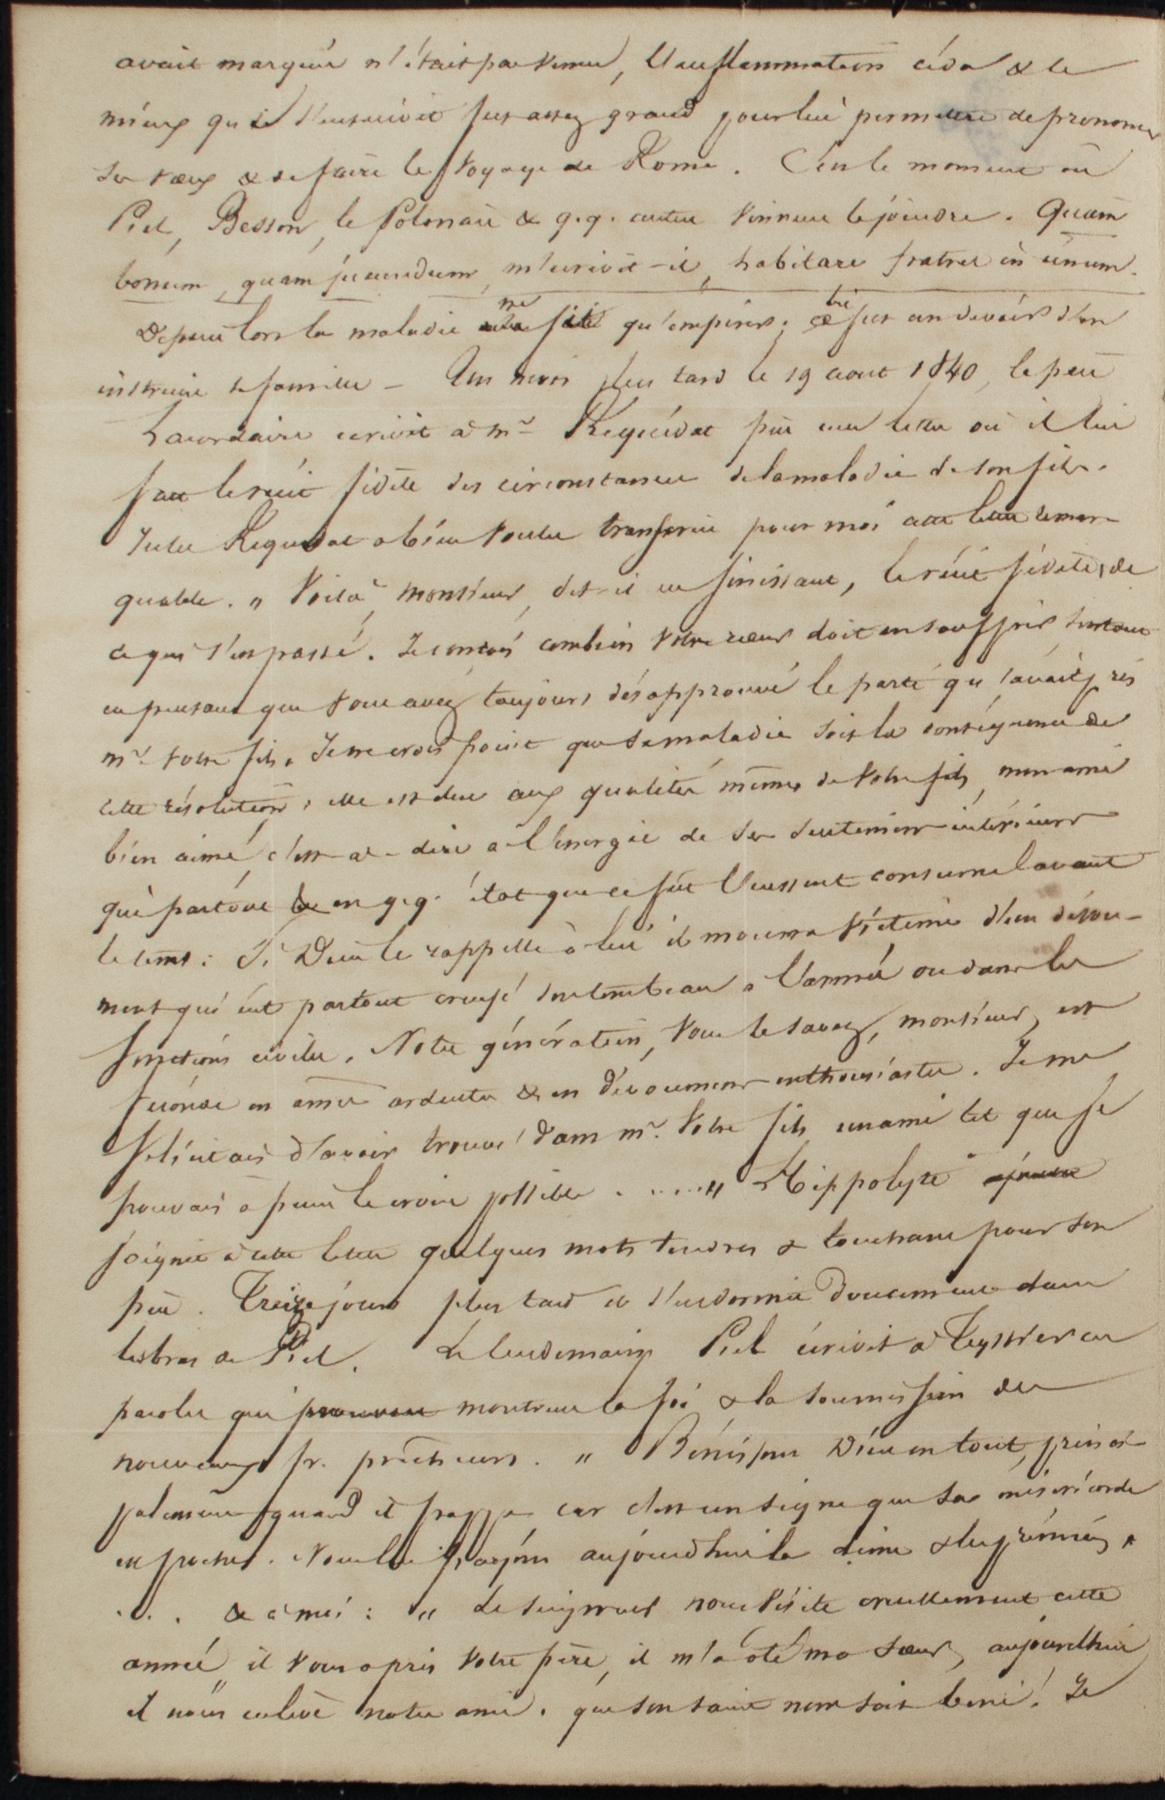 avait marquée n'était pas venue, l'inflammation céda & le
mieux qui s'ensuivit fut assez grand pour lui permettre de prononcer
ses vœux & de faire le voyage de Rome. C'est le moment où
Piel, Besson, le Polonais & q.q. autres vinrent le joindre. Quam
bonum, quam jucundum, m'écrivit-il, habitare fratres in unum.
Depuis lors la maladie ne fit qu'empirer; ce fut un devoir d'en
instruire sa famille – Un mois plus tard le 19 aout 1840, le père
Lacordaire écrivit à Mr Réquédat père une lettre où il lui
fait le récit fidèle des circonstances de la maladie de son fils.
Jules Requedat a bien voulu transcrire pour moi cette lettre remar-
quable. " Voilà, monsieur, dit-il en finissant, le récit fidèle, de
ce qui s'est passé. Je conçois combien votre cœur doit en souffrir surtout
en pensant que vous avez toujours désapprouvé le parti qu'avait pris
mr. votre fils. Je ne crois point que sa maladie soit la conséquence de
cette résolution, elle est due aux qualités mêmes de votre fils, mon ami
bien aimé, c'est-à-dire à l'énergie de ses sentimens intérieurs
qui partout & en q.q. état que ce fût l'eussent consumé avant
le tems: Si Dieu le rappelle à lui il mourra victime d'un dévoue-
ment qui eût partout creusé son tombeau à l'armée ou dans les
fonctions civiles. Notre génération, vous le savez, monsieur, est
féconde en âmes ardentes & en dévouemens enthousiastes. Je me
félicitais d'avoir trouvé dans mr. votre fils un ami tel que je
pouvais à peine le croire possible . ..... " Hippolyte ajouta
joignit à cette lettre quelques mots tendres & touchans pour son
père. Treize jours plus tard il s'endormit doucement dans
les bras de Piel. Le lendemain Piel écrivit à Teyssier ces
paroles qui prouvent montrent la foi & la soumission des
nouveaux fr. prêcheurs. " Bénissons Dieu en tout, princi-
palement quand il frappe car c'est un signe que sa miséricorde
est proche. Nous lui payons aujourd'hui la dime & les prémices,
. . . & à moi: " Le seigneur nous visite cruellement cette
année, il vous a pris votre père, il m'a ôté ma sœur, aujourd'hui
il nous enlève notre ami. que son saint nom soit béni! Je